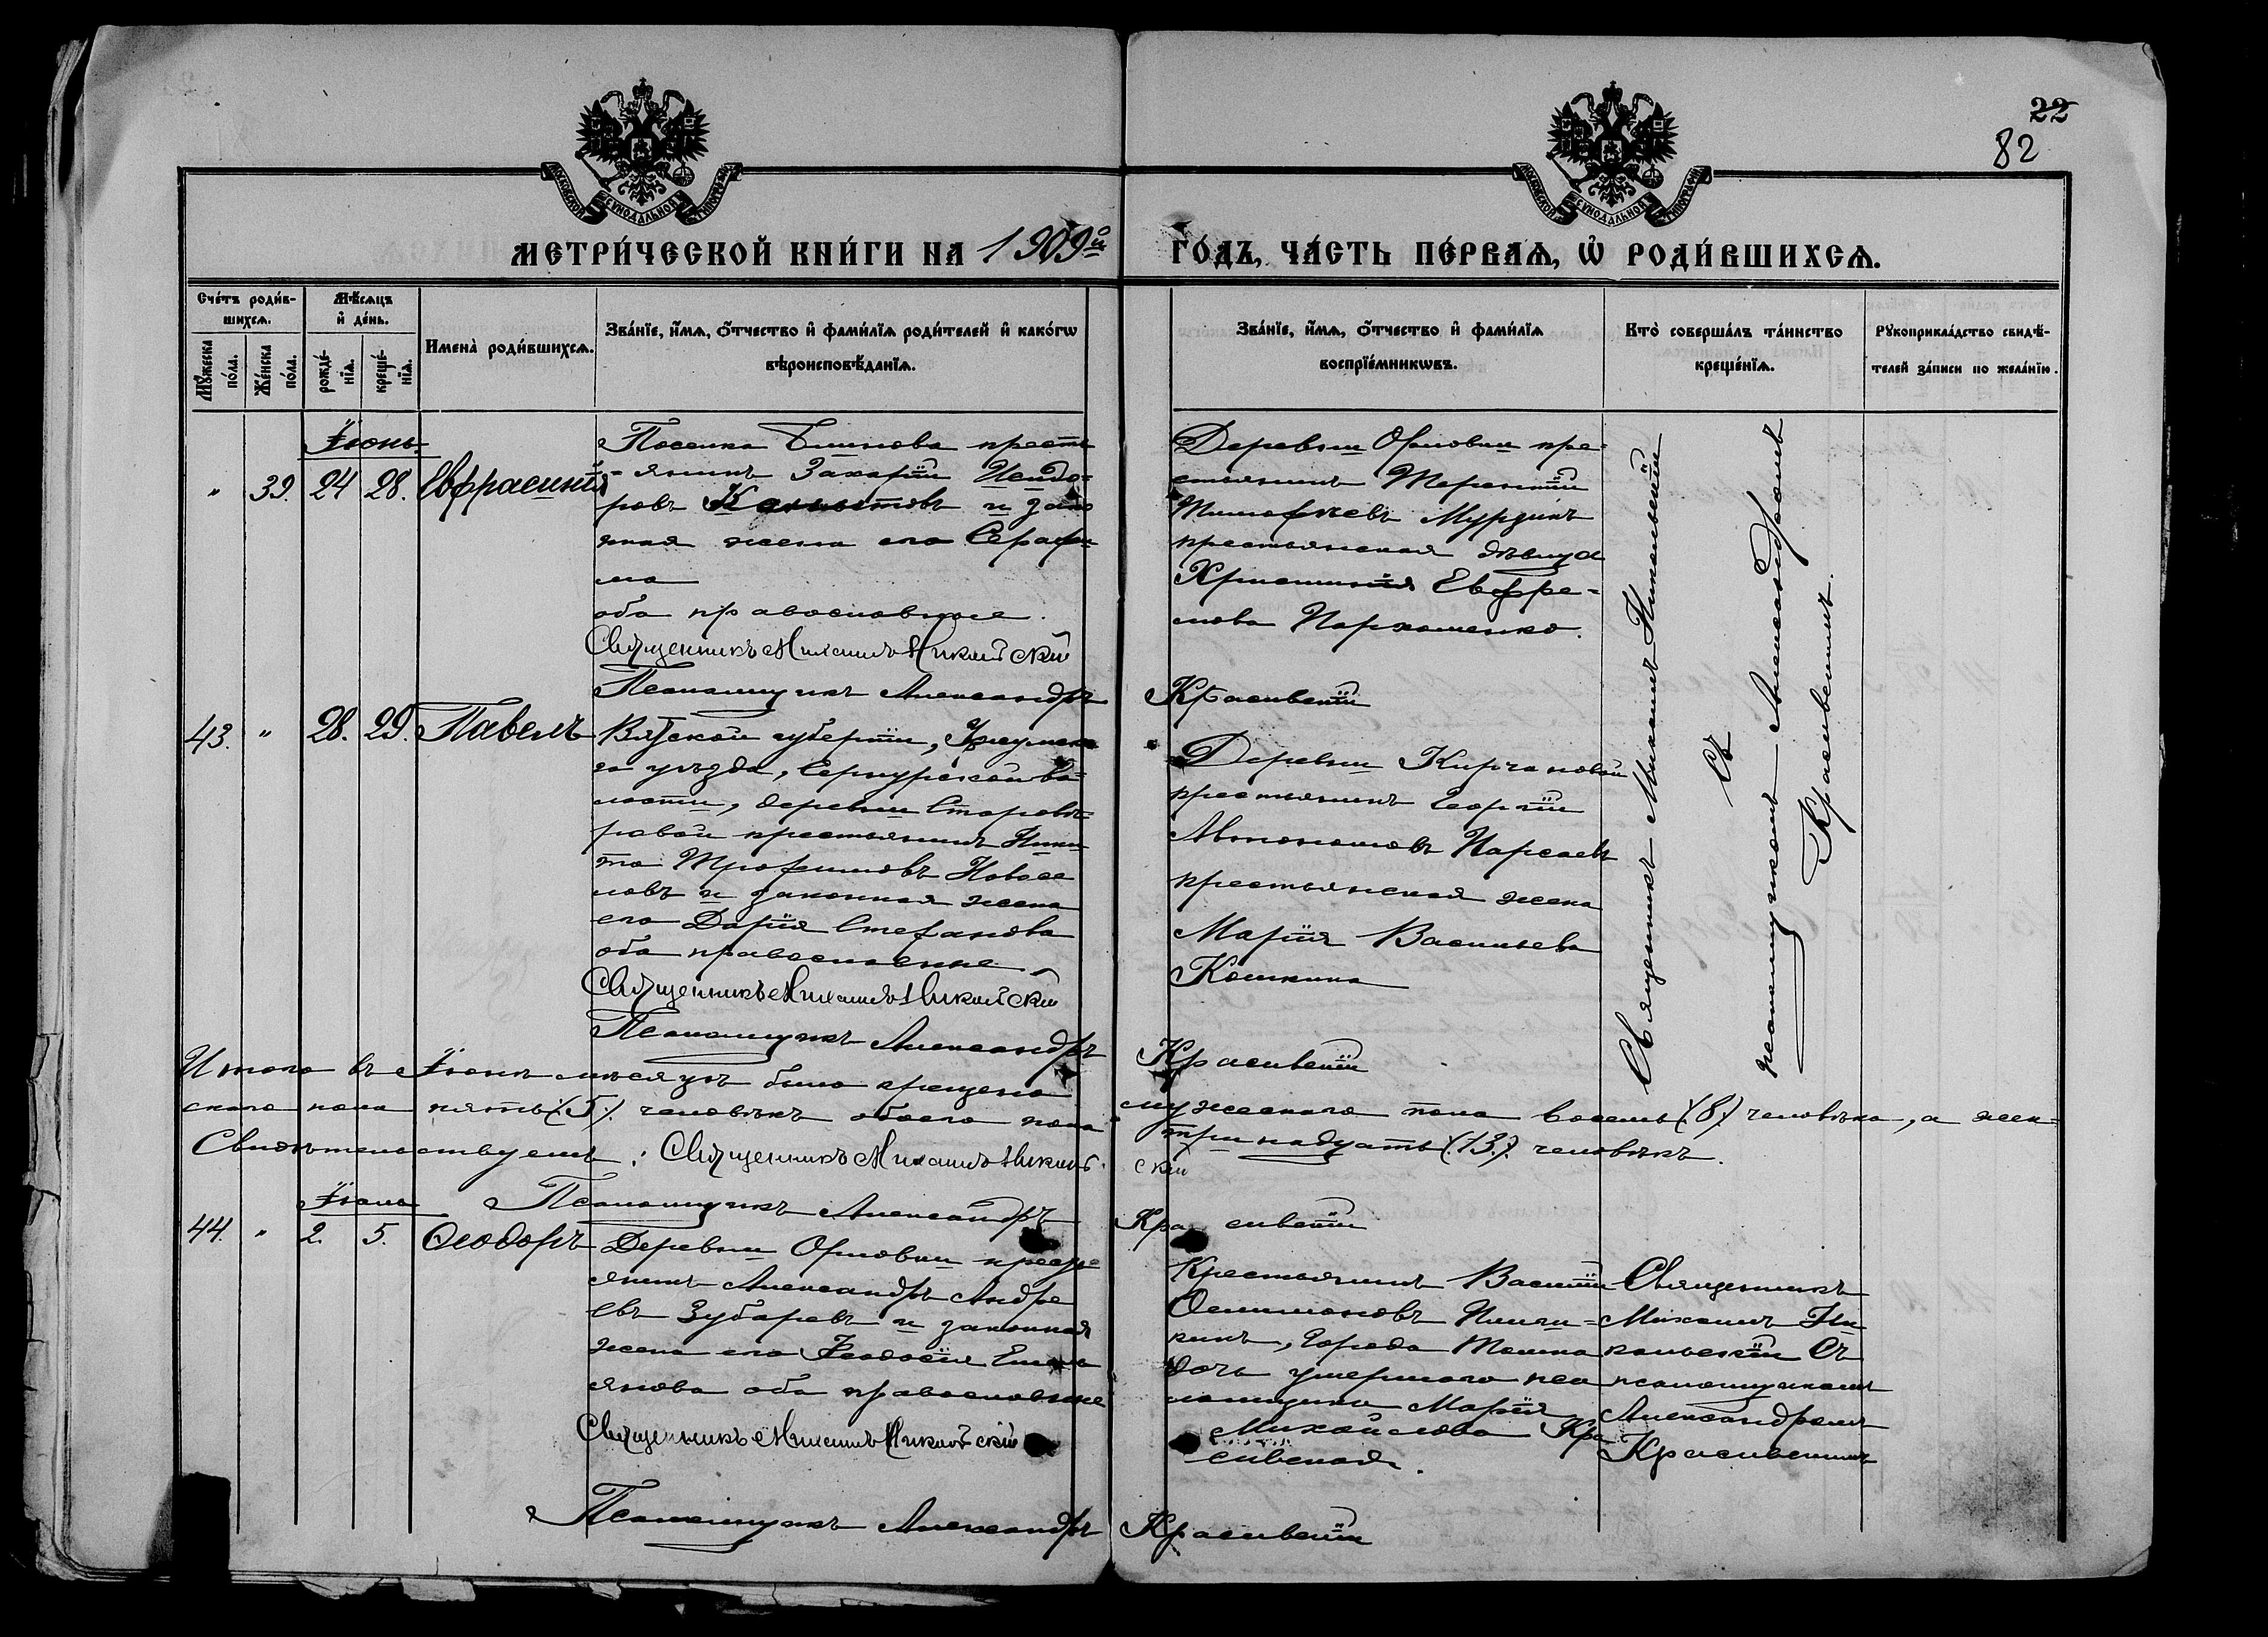 22
82
МОСКОВСКОЙ СѴНОДАЛЬНОЙ ТИПОГРАФІИ
МОСКОВСКОЙ СѴНОДАЛЬНОЙ ТИПОГРАФІИ
МЕТРИ́ЧЕСКОЙ КНИ́ГИ НА 1909ой ГО́ДЪ, ЧА́СТЬ ПЕ́РВАѦ, Ѡ҆ РОДИ́ВШИХСѦ.
Сче́тъ роди́в-
шихсѧ.
Мꙋ́жеска по́ла.
Же́нска по́ла.
Мѣ́сѧцъ
и҆ де́нь.
рожде́-
нїѧ.
креще́-
нїѧ.
Имена̀ роди́вшихсѧ.
Зва́нїе, и҆́мѧ, ѻ҆́тчество и҆ фами́лїѧ роди́телей и҆ како́гѡ
вѣроисповѣ́данїѧ.
Зва́нїе, и҆́мѧ, ѻ҆́тчество и҆ фами́лїѧ
воспрїе́мникѡвъ.
Кто̀ соверша́лъ та́инство
креще́нїѧ.
Рꙋкоприкла́дство свидѣ́-
телей за́писи по жела́нїю.
Іюнь.
" 39. 24 28. Евфрасинія
Поселка кресть-
янинъ Захарій Исидо-
ровъ и зако
нная жена его Серафи
ма
оба православные.
Священникъ Михаилъ Никольскій
Псаломщикъ Александръ Красивскій
Деревни Орловки кре-
стьянинъ Терентій
Тимофѣевъ Мурзинъ
крестьянская дѣвица
Христинія Евфре-
мова Пархоменко.
Священникъ Михаилъ Никольскій
Съ
псаломщикомъ Александромъ
Красивскимъ.
43. " 28. 29. Павелъ
Вятской губерніи, Уржумска
го уѣзда, Сернурской во-
лости, деревни
крестьянинъ Ники-
та Трофимовъ Новосе
ловъ и законная жена
его Дарія Стефанова
оба православные
Священникъ Михаилъ Никольскій
Псаломщикъ Александръ Красивскій
Деревни
крестьянинъ Георгій
Автономовъ Парсаевъ
крестьянская жена
Марія Васильева
Кошкина
Итого въ Іюнѣ мѣсяцѣ было крещено мужескаго пола восемь (8) человѣкъ, а жен-
скаго пола пять (5) человѣкъ обоего пола тринадцать (13) человѣкъ.
Свидѣтельствуемъ: Священникъ Михаилъ Никольскій
Псаломщикъ Александръ Красивскій
Іюль
44. " 2. 5. Ѳеодоръ
Деревни Орловки кресть-
янинъ Александръ Андре
евъ Зубаревъ и законная
жена его Ѳеодосія Емель
янова оба православные
Священникъ Михаилъ Никольскій
Псаломщикъ Александръ Красивскій
Крестьянинъ Василій
города Томска
дочь умершаго пса
ломщика Марія
Михайлова Кра
сивская.
Священникъ
Михаилъ Ни
кольскій Съ
псаломщикомъ
Александромъ
Красивскимъ